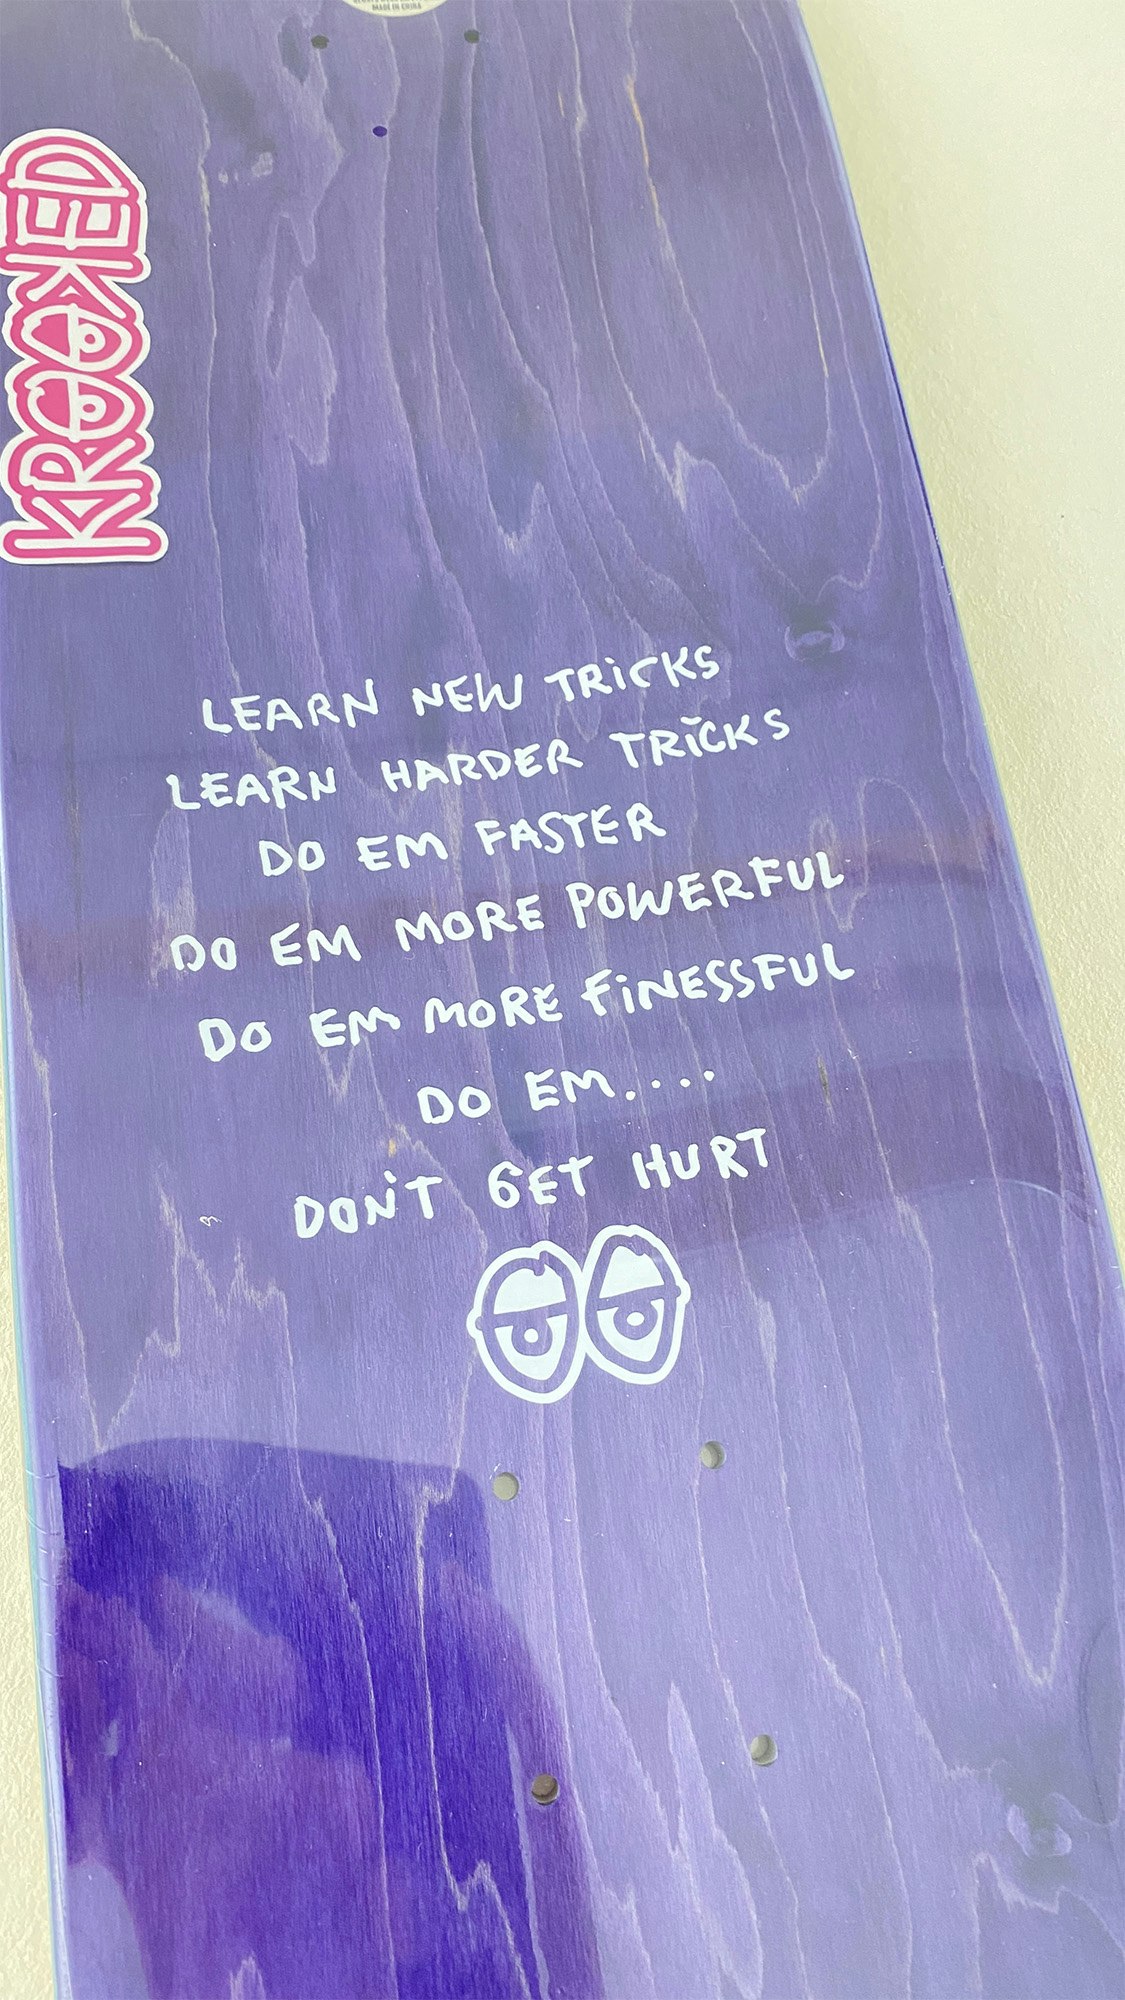 MADE IN CHINA
KROOKED
LEARN NEW TRICKS
LEARN HARDER TRICKS
DO EM FASTER
DO EM MORE POWERFUL
DO EM MORE FINESSFUL
DO EM....
DON'T GET HURT